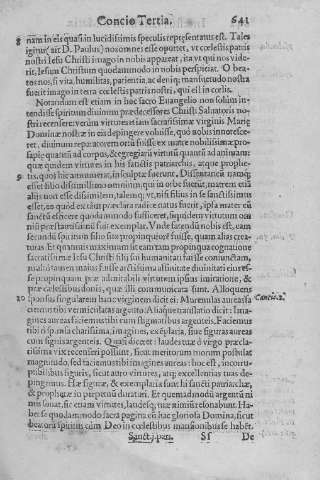 Concio Tertia. 641
8 nam in eis quasi in lucidissimis speculis repræsentatus est. Tales
igitur (ait D. Paulus) nos omnes esse oportet, vt cœlestis patris
nostri Iesu Christi imago in nobis appareat, ita vt qui nos vide-
rit, Iesum Christum quodammodo in nobis perspiciat. O bea-
tos nos, si vita, humilitas, patientia, ac denique mansuetudo nostra
fuerit imago in terra cœlestis patris nostri, qui est in cœlis.
Notandum est etiam in hoc sacro Euangelio non solùm in-
tendisse spiritum diuinum prædecessores Christi Saluatoris no-
stri recensere: verùm virtutes etiam sacratissimæ virginis Mariæ
Dominæ nostræ in eis depingere voluisse, quò nobis innotesce-
ret, diuinum reparatorem ortū fuisse ex matre nobilissimæ pro-
sapiæ quantū ad corpus, & egregiarū virtutū quantū ad animam:
quæ quidem virtutes in his sanctis patriarchis, atque prophe-
9 tis, quos hîc annumerat, insculptæ fuerunt.
esset filio dissimillimo omnium, qui in orbe fuerūt, matrem etiā
alijs non esse dissimilem,
esset, eo quòd ex talis
sanctū efficere quodammodo sufficeret, siquidem virtutum om
niū præstantissimū fuit exemplar. Vnde fatendū nobis est, eam
secundùm spiritum filio suo propinquiorē fuisse, quàm alias crea-
turas. Et quamuis maximum sit eam tam propinqua cognatione
sacratissimæ Iesu Christi filij sui humanitati fuisse coniunctam,
multò tamen maius fuisse arctissima affinitate diuinitati eius es-
se propinquam præ admirabili virtutem ipsius imitatione, &
præ cælestibus donis, quæ illi communicata sunt. Alloquens
10 sponsus singularem hanc virginem dicit ei: Murenulas aureas fa Cantic. 1.
ciemus tibi vermiculatas argento. Alia quoque translatio dicit: Ima-
gines aureas faciemus tibi cum stigmatibus argenteis. Faciemus
tibi ò sponsa charissima, imagines, exēplaria, siue figuras aureas
cum signis argenteis. Quasi diceret: laudes tuæ ò virgo præcla-
rissima vix recenseri possunt, sicut meritorum tuorum postulat
magnitudo, sed faciemus tibi imagines aureas: hoc est, incorru-
ptibilibus figuris, sicut auro virtutes, atque excellentias tuas de-
pingemus. Hæ figuræ, & exemplaria sunt hi sancti patriarchæ,
& prophetæ in perpetuū duraturi. Et quemadmodū argentū ni
mis sonat, sic etiam virtutes, laudesque tuæ nimiùm resonabunt. Ha-
bes quodammodo sacra pagina eā hac gloriosa Domina, sicut
beatorū spiritū cùm Deo in cœlestibus mansionibus se habēt.
Sanct. j. pars. Sf De